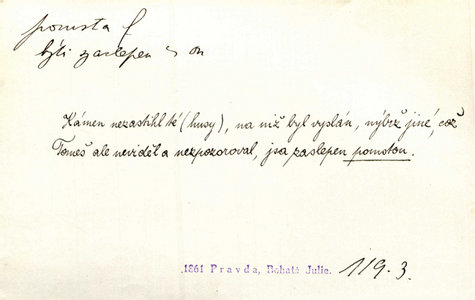 pomsta f
býti zaslepen s on
Kámen nezastihl té (husy), na niž byl vyslán, nýbrž jiné, což
Tomeš ale neviděl a nezpozoroval, jsa zaslepen pomstou.
1861 Pravda, Bohatá Julie. 119.3